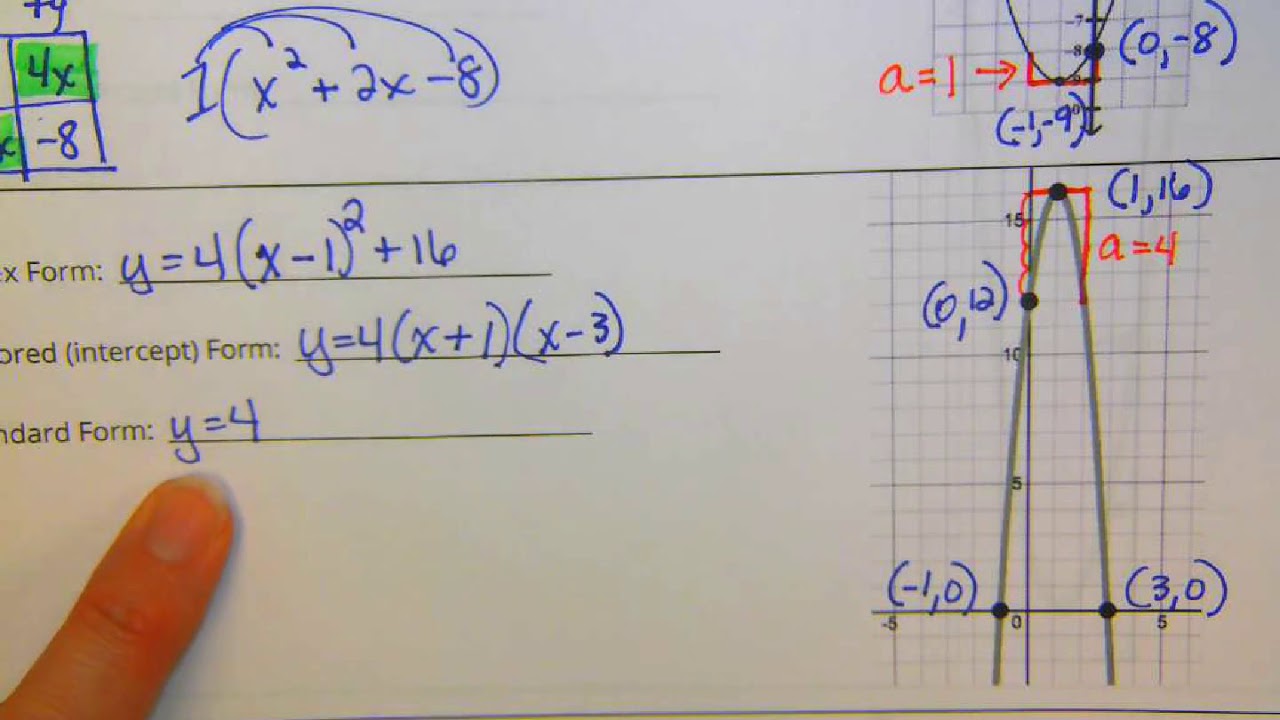 +y
4x
-8
1(x² + 2x - 8)
-7
-8
(0, -8)
a = 1 →
(-1, -9)
x Form: y = 4(x - 1)² + 16
ored (intercept) Form: y = 4(x + 1)(x - 3)
ndard Form: y = 4
(1, 16)
15
a = 4
(0, 12)
10
5
(-1, 0)
(3, 0)
-5
0
5